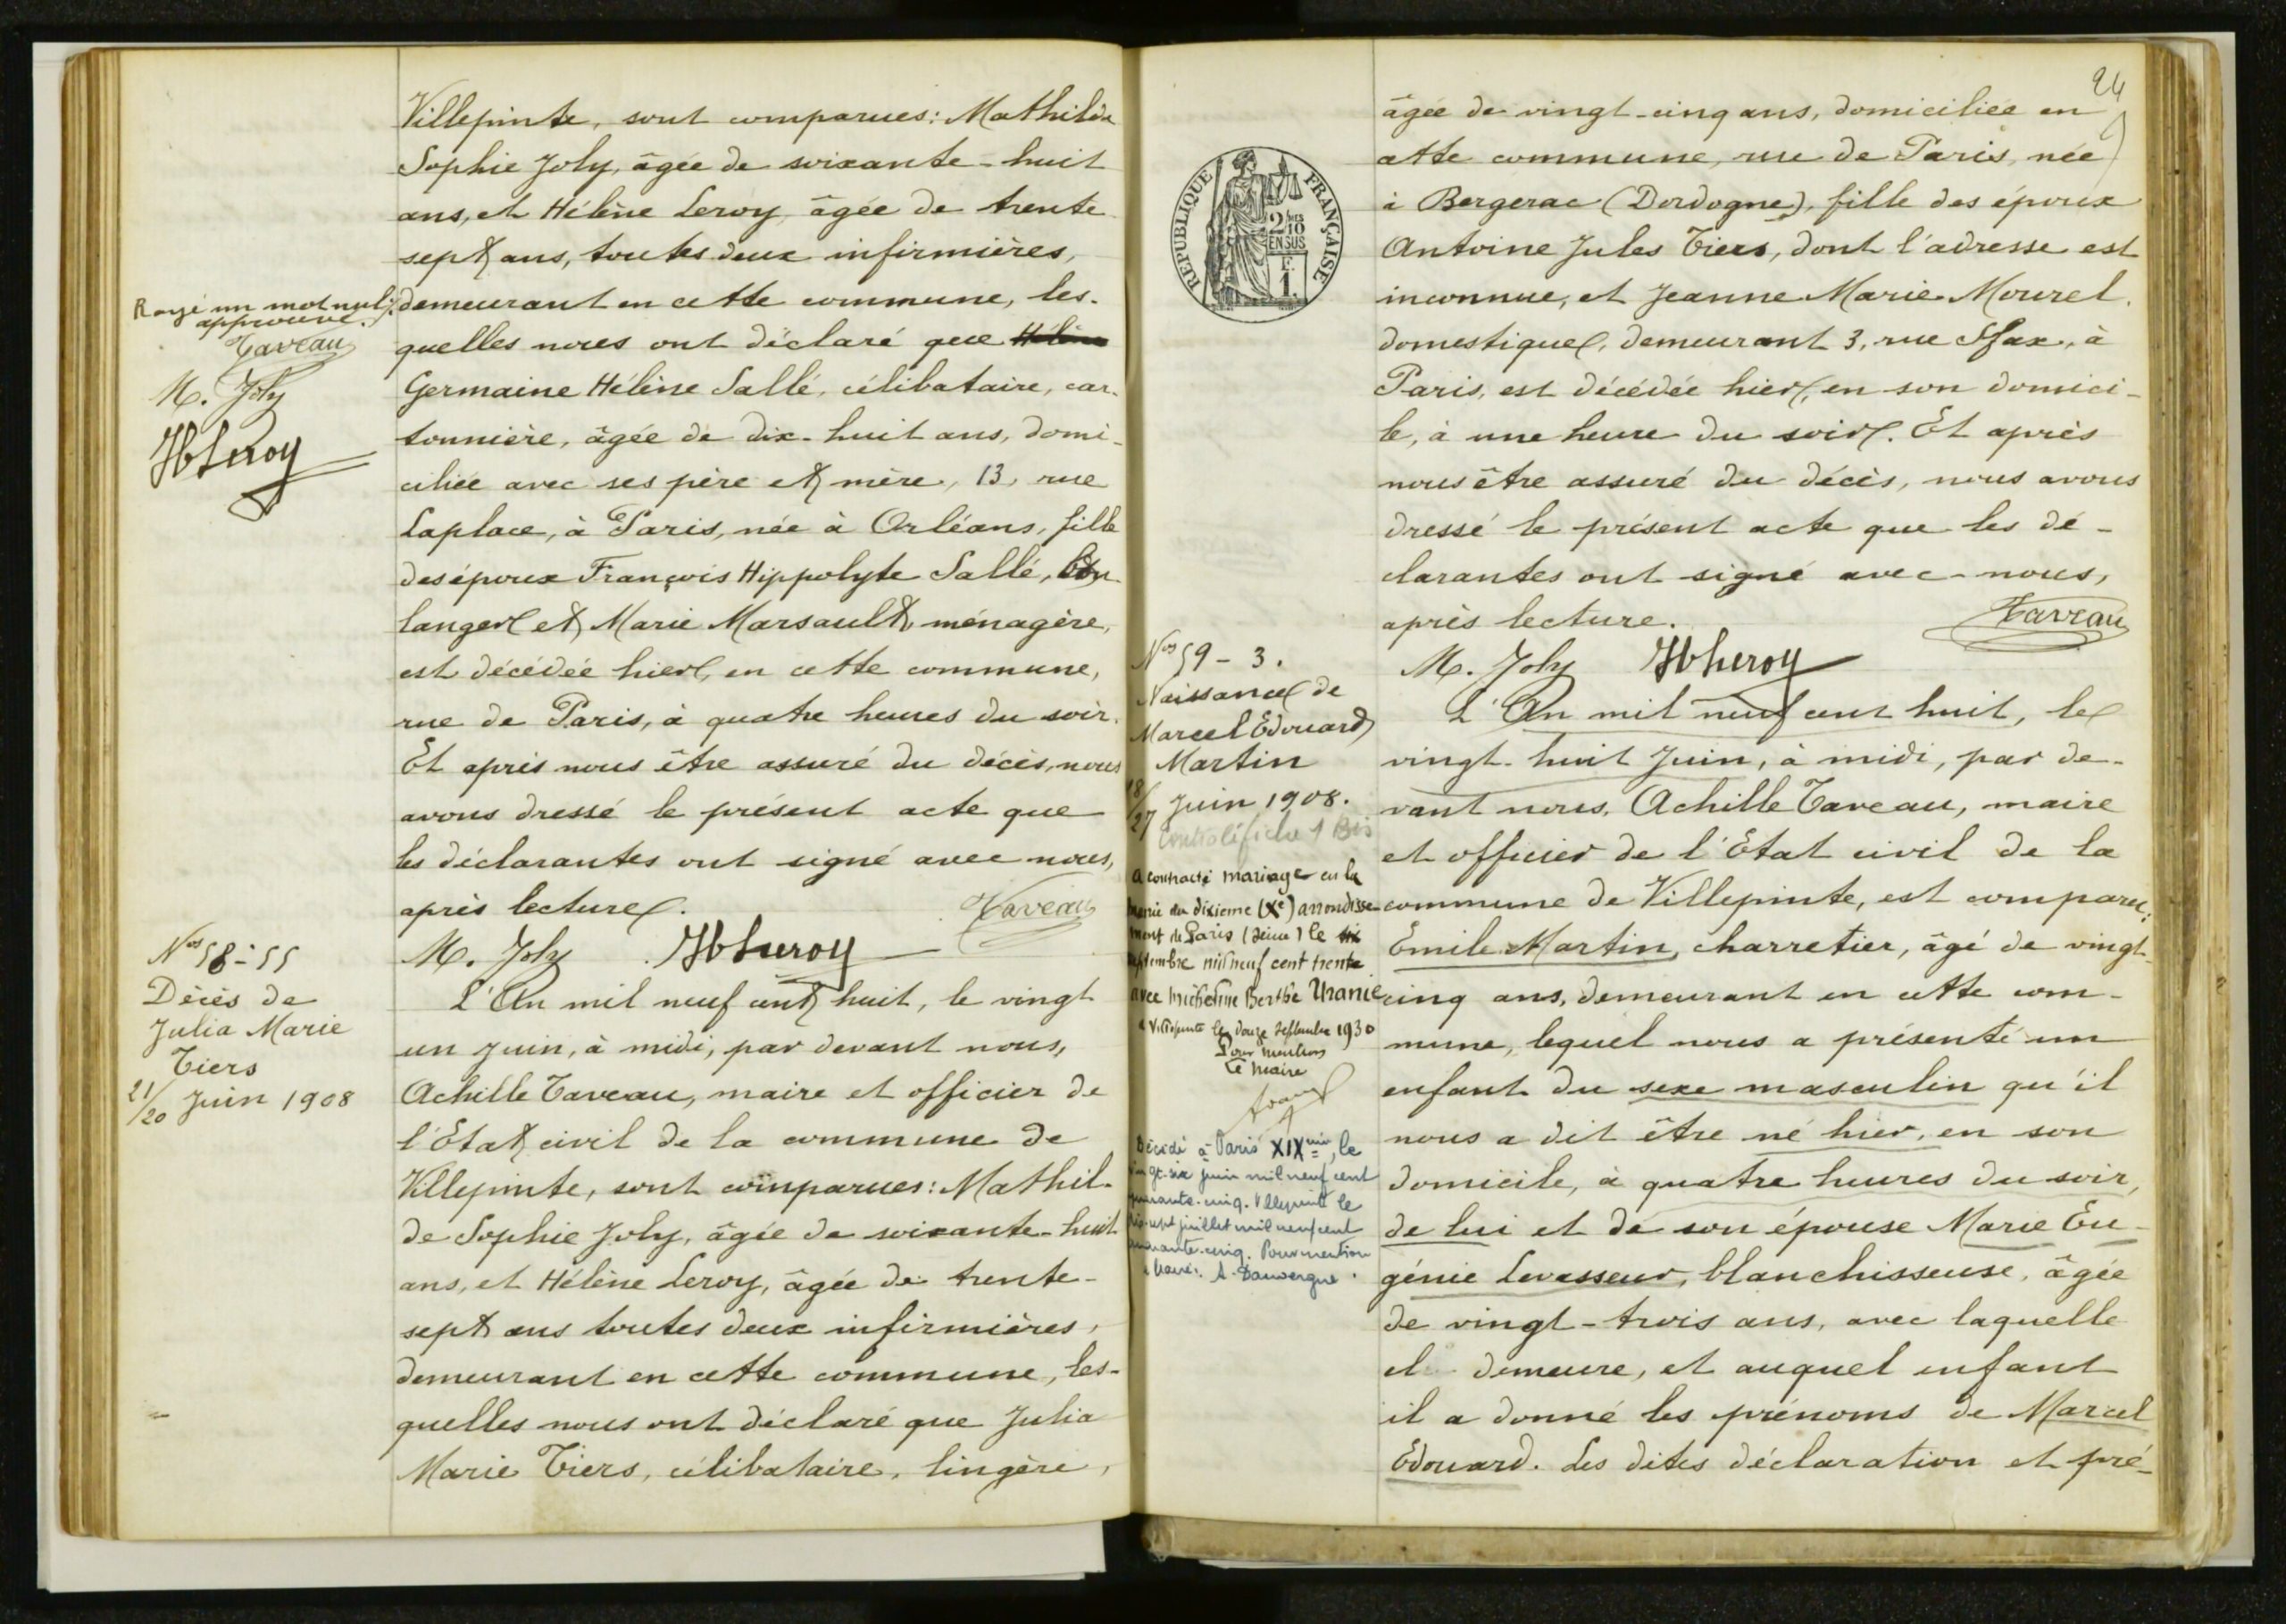 Villepinte, sont comparues: Mathilde
Sophie Joly, âgée de soixante-huit
ans, et Hélène Leroy, âgée de trente
sept ans, toutes deux infirmières,
demeurant en cette commune, les-
quelles nous ont déclaré que Hélène
Germaine Hélène Sallé, célibataire, car-
tonnière, âgée de dix-huit ans, domi-
ciliée avec ses père et mère, 13, rue
Laplace, à Paris, née à Orléans, fille
des époux François Hippolyte Sallé, bou-
langer et Marie Marsault, ménagère,
est décédée hier, en cette commune,
rue de Paris, à quatre heures du soir.
Et après nous être assuré du décès, nous
avons dressé le présent acte que
les déclarantes ont signé avec nous,
après lecture.
Taveau
M. Joly H Leroy
Rayé un mot nul;
approuvé.
Taveau
M. Joly
H Leroy
Nos 58-55
Décès de
Julia Marie
Tiers
21/20 Juin 1908
L'An mil neuf cent huit, le vingt
un Juin, à midi, par devant nous,
Achille Taveau, maire et officier de
l'Etat civil de la commune de
Villepinte, sont comparues: Mathil-
de Sophie Joly, âgée de soixante-huit
ans, et Hélène Leroy, âgée de trente-
sept ans toutes deux infirmières,
demeurant en cette commune, les-
quelles nous ont déclaré que Julia
Marie Tiers, célibataire, lingère,
24
âgée de vingt-cinq ans, domiciliée en
cette commune, rue de Paris, née
à Bergerac (Dordogne), fille des époux
Antoine Jules Tiers, dont l'adresse est
inconnue, et Jeanne Marie Mourel,
domestique, demeurant 3, rue Sfax, à
Paris, est décédée hier, en son domici-
le, à une heure du soir. Et après
nous être assuré du décès, nous avons
dressé le présent acte que les dé-
clarantes ont signé avec nous,
après lecture.
Taveau
M. Joly H Leroy
REPUBLIQUE FRANÇAISE
2/10 EN SUS
F. 1.
Nos 59-3.
Naissance de
Marcel Edouard
Martin
28/27 Juin 1908.
Contrôle fiche 1 Bis
A contracté mariage en la
mairie du dixième (Xe) arrondisse-
ment de Paris (Seine) le six
septembre mil neuf cent trente
avec Micheline Berthe Uranie
à Villepinte le douze septembre 1930
Pour mention
Le Maire
Décédé à Paris XIXème, le
vingt-six juin mil neuf cent
quarante-cinq. Villepinte le
dix-sept juillet mil neuf cent
quarante-cinq. Pour mention
le Maire: A. Dauvergne.
L'An mil neuf cent huit, le
vingt-huit Juin, à midi, par de-
vant nous, Achille Taveau, maire
et officier de l'Etat civil de la
commune de Villepinte, est comparu:
Emile Martin, charretier, âgé de vingt-
cinq ans, demeurant en cette com-
mune, lequel nous a présenté un
enfant du sexe masculin qu'il
nous a dit être né hier, en son
domicile, à quatre heures du soir,
de lui et de son épouse Marie Eu-
génie Levasseur, blanchisseuse, âgée
de vingt-trois ans, avec laquelle
il demeure, et auquel enfant
il a donné les prénoms de Marcel
Edouard. Les dites déclaration et pré-